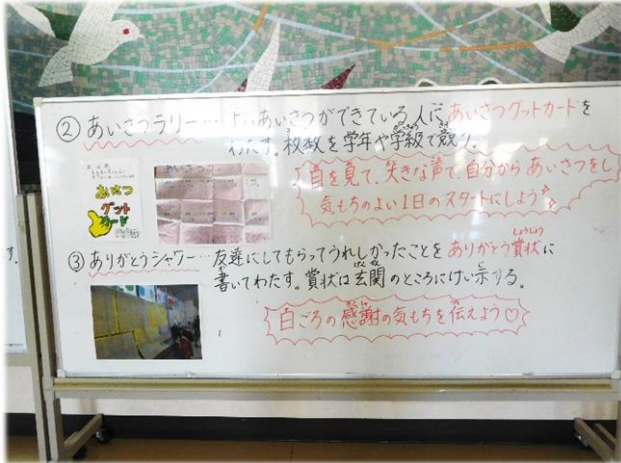 ② あいさつラリー… よいあいさつができている人に あいさつグットカードを
わたす。枚数を学年や学級で競う。
目を見て、大きな声で、自分から あいさつをし
気もちのよい1日のスタートにしよう
あいさつ
グット
カード
③ ありがとうシャワー… 友達にしてもらってうれしかったことを ありがとう賞状に
書いてわたす。賞状は玄関のところにけい示する。
日ごろの感謝の気もちを伝えよう♡